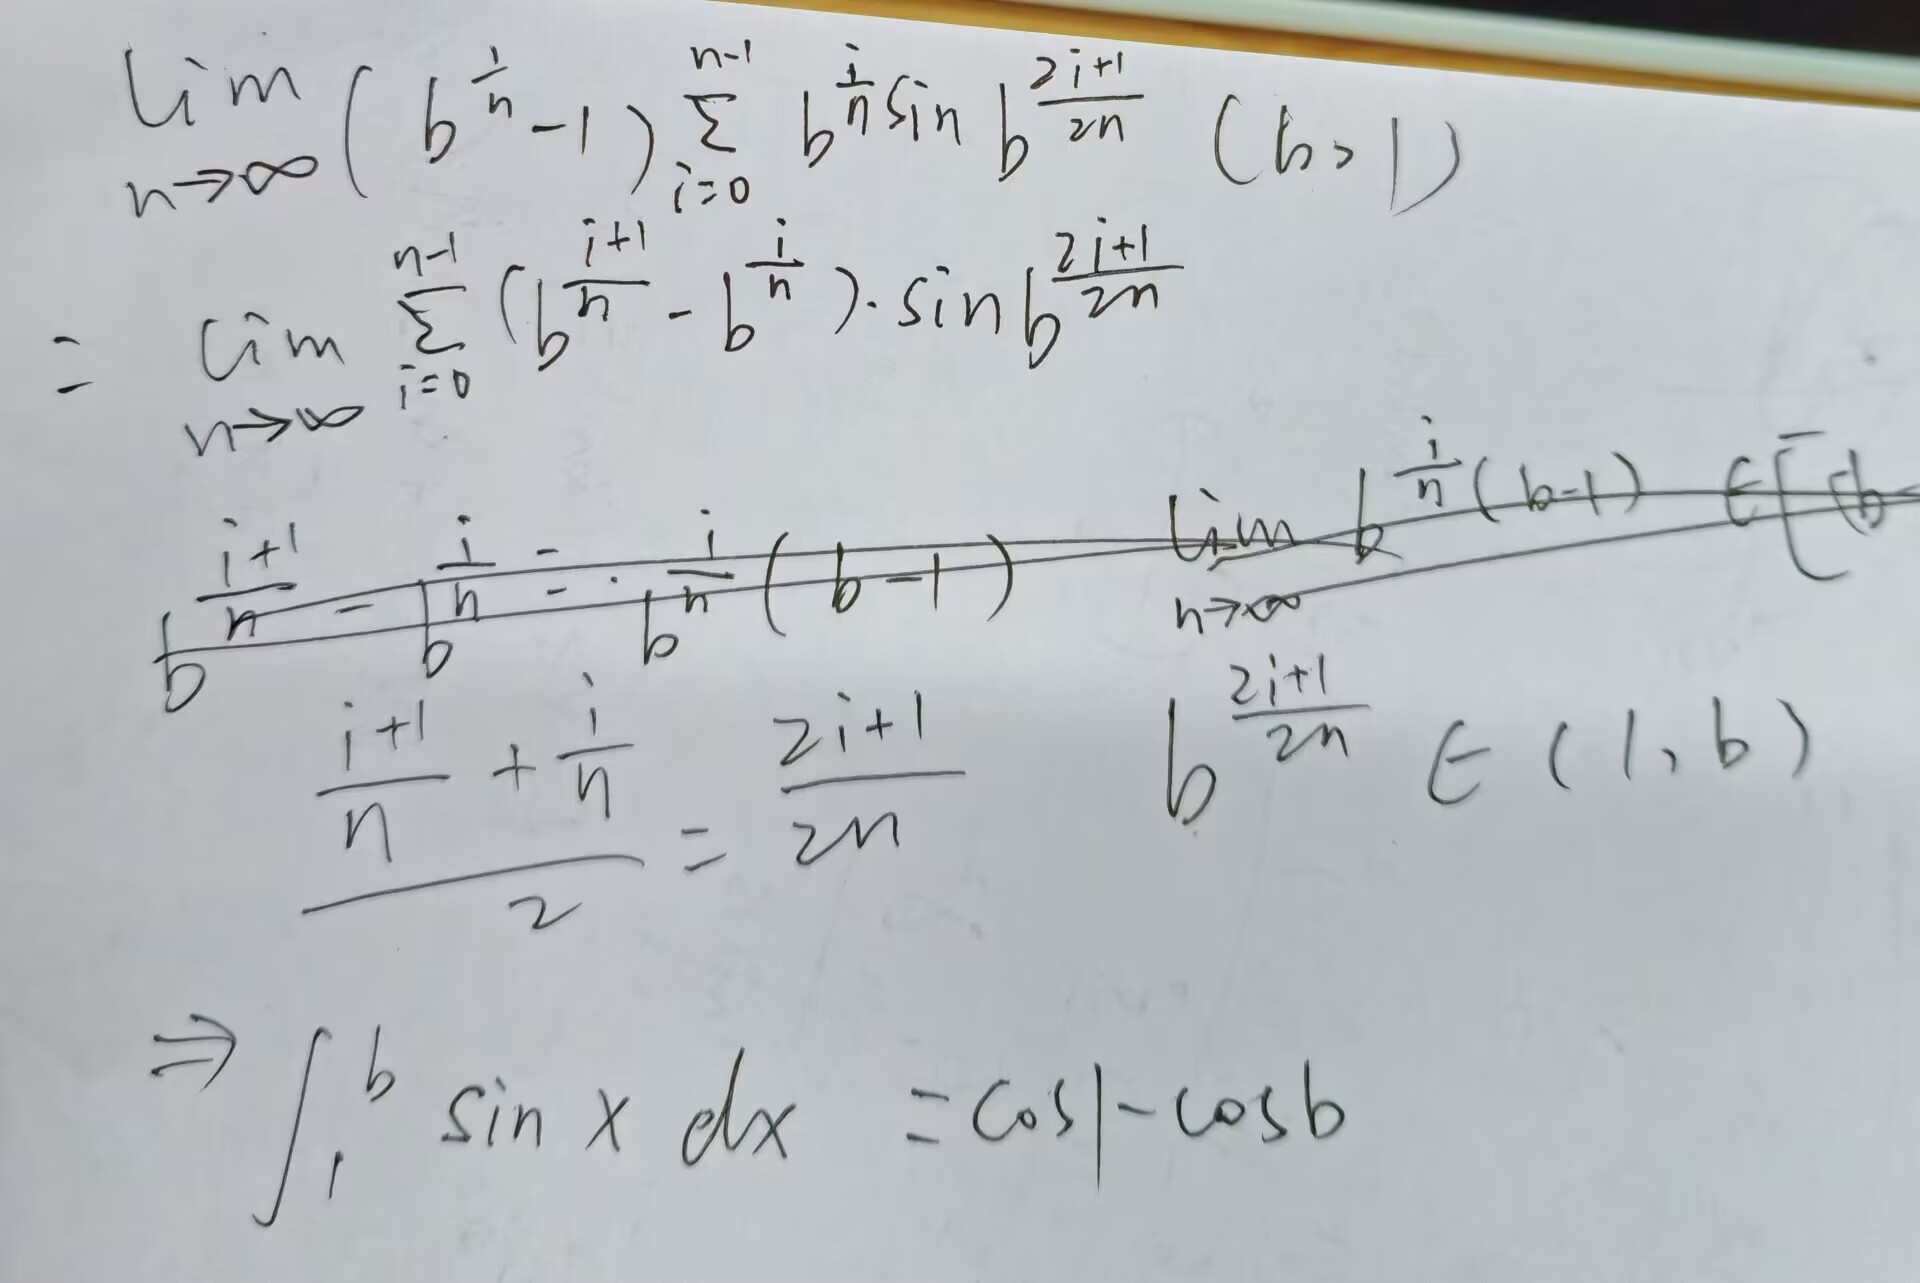 lim n→∞ (b^{1/n} - 1) Σ_{i=0}^{n-1} b^{i/n} sin b^{(2i+1)/(2n)} (b>1)
= lim n→∞ Σ_{i=0}^{n-1} (b^{(i+1)/n} - b^{i/n}) · sin b^{(2i+1)/(2n)}
b^{(i+1)/n} - b^{i/n} = · b^{i/n} (b-1) lim n→∞ b^{i/n} (b-1) ∈ [(b-
((i+1)/n + i/n)/2 = (2i+1)/(2n) b^{(2i+1)/(2n)} ∈ (1, b)
⇒ ∫_1^b sin x dx = cos1 - cosb